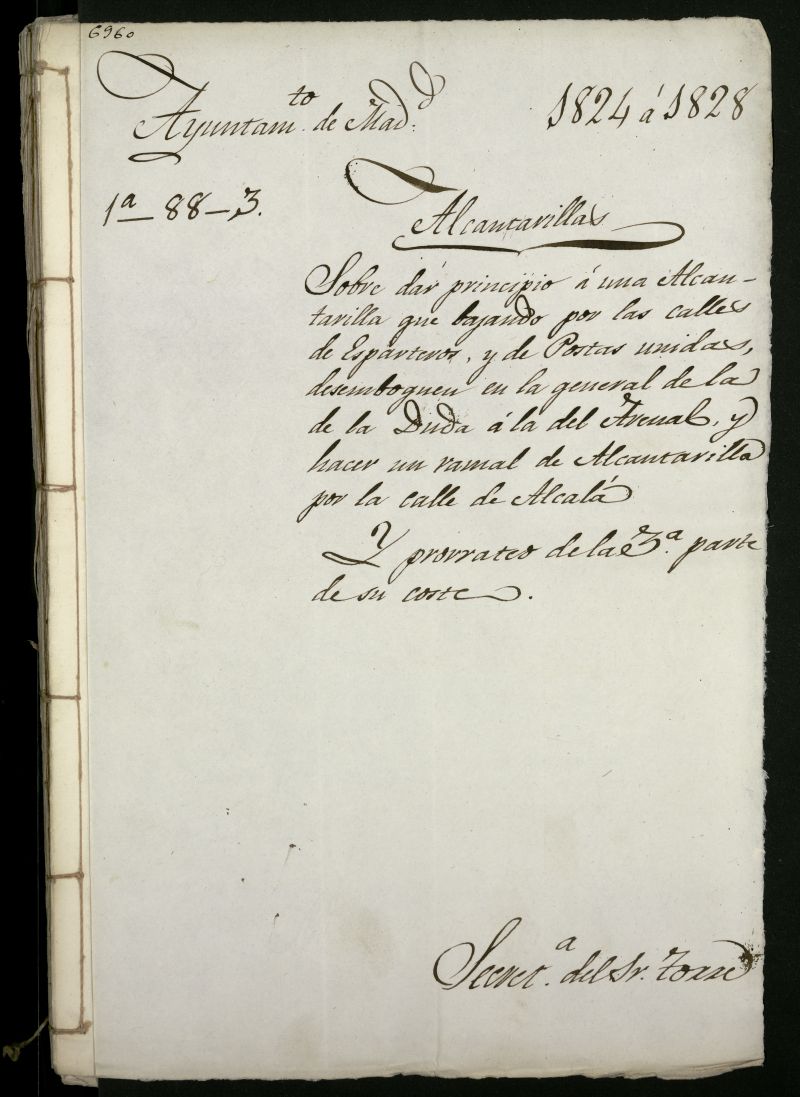 6960
Ayuntam.to de Mad.d
1824 á 1828
1a—88—3.
Alcantarillas
Sobre dár principio á una Alcan-
tarilla que bajando por las calles
de Esparteros, y de Postas unidas,
desemboquen en la general de la
de la Duda á la del Arenal, y
hacer un ramal de Alcantarilla
por la calle de Alcalá
Y prorrateo de la 3.a parte
de su coste.
Secret.a del Sr. Torre